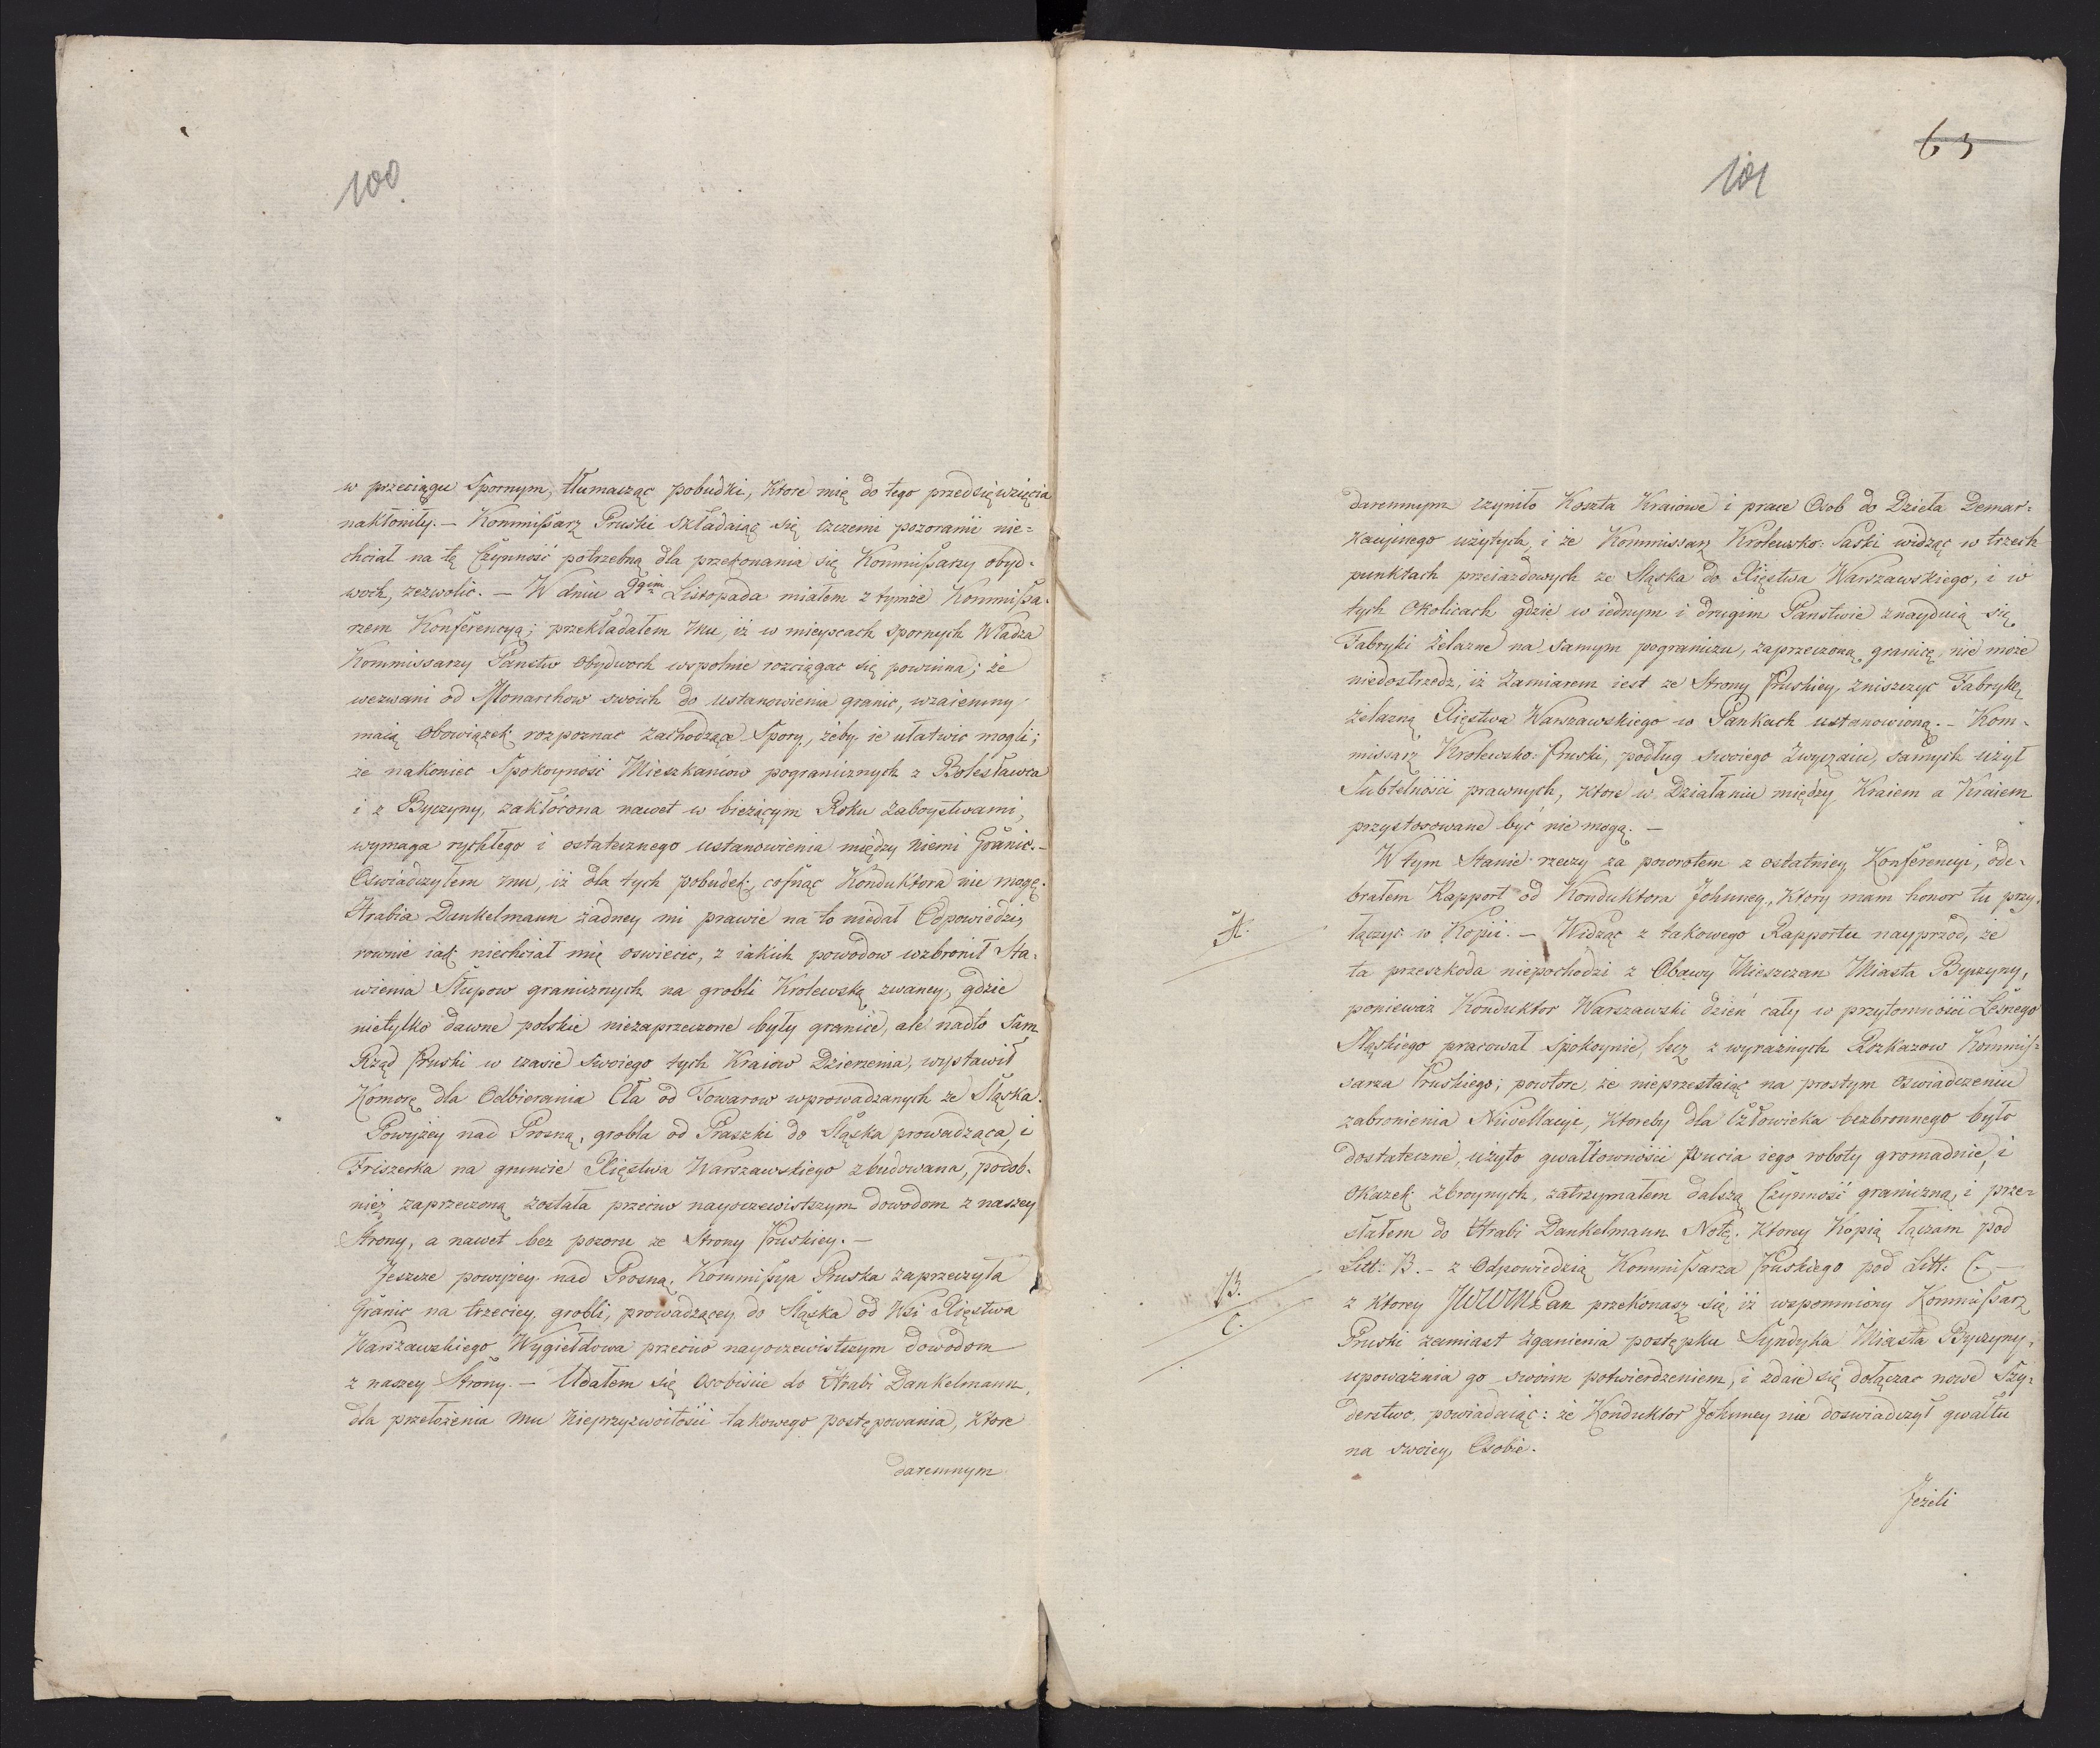 100.
w przeciągu Spornym, tłumacząc pobudki, Ktore mię do tego przedsięwzięcia
nakłoniły. — Kommißarz Pruski składaiąc się czczemi pozorami nie=
chciał na tę Czynność potrzebną dla przekonania się Kommißarzy obyd=
woch, zezwolić. — W dniu 2gim Listopada miałem z tymże Kommißa=
rzem Konferencyą; przekładałem mu, iż w mieyscach spornych Władza
Kommissarzy Państw obydwoch wspolnie rozciągac się powinna; że
wezwani od Monarchow swoich do ustanowienia granic, wzaiemny
maią obowiązek rozpoznac zachodzące Spory, żeby ie ułatwic mogli;
że nakoniec Spokoyność Mieszkancow pogranicznych z Bolesławca
i z Byczyny, zakłócona nawet w bieżącym Roku zaboystwami,
wymaga rychłego i ostatecznego ustanowienia między niemi Granic. —
Oswiadczyłem mu, iż dla tych pobudek, cofnąc Konduktora nie mogę.
Hrabia Dankelmann żadney mi prawie na to niedał Odpowiedzi,
rownie iak niechciał mię oswiecic, z iakich powodow wzbronił Sta=
wienia Słupow granicznych na grobli Krolewską zwaney, gdzie
nietylko dawne polskie niezaprzeczone były granice, ale nadto sam
Rząd Pruski w czasie swoiego tych Kraiow Dzierzenia, wystawił
Komorę dla Odbierania Cła od Towarow wprowadzanych ze Sląska.
Powyżey nad Prosną, grobla od Praszki do Sląska prowadząca, i
Friszerka na gruncie Xięstwa Warszawskiego zbudowana, podob=
nież zaprzeczoną została przeciw nayoczewistszym dowodom z naszey
Strony, a nawet bez pozoru ze Strony Pruskiey. —
Jeszcze powyżey nad Prosną, Kommißya Pruska zaprzeczyła
Granic na trzeciey grobli, prowadzącey do Sląska od Wsi Xięstwa
Warszawskiego Wygiełdowa przeciw nayoczewistszym dowodom
z naszey Strony. — Udałem się Osobiscie do Hrabi Dankelmann,
dla przełożenia mu nieprzyzwoitości takowego postępowania, Ktore
daremnym
63
101
daremnym czyniło Koszta Kraiowe i prace Osob do Dzieła Demar=
kacyinego użytych, i że Kommissarz Krolewsko=Saski widząc w trzech
punktach przeiazdowych ze Sląska do Xięstwa Warszawskiego, i w
tych Okolicach gdzie w iednym i drugim Państwie znayduią się
Fabryki żelazne na samym pograniczu, zaprzeczoną granicę, nie może
niedostrzedz, iż Zamiarem iest ze Strony Pruskiey, zniszczyc Fabrykę
żelazną Xięstwa Warszawskiego w Pankach ustanowioną. — Kom=
missarz Krolewsko=Pruski, podług swoiego zwyczaiu, samych użył
Subtelności prawnych, ktore w Działaniu między Kraiem a Kraiem
przystosowane być nie mogą. —
W tym Stanie rzeczy za powrotem z ostatniey Konferencyi, ode=
brałem Rapport od Konduktora Johnney, Ktory mam honor tu przy=
A.
łączyc w Kopii. — Widząc z takowego Rapportu nayprzod, że
ta przeszkoda niepochodzi z Obawy Mieszczan Miasta Byczyny,
ponieważ Konduktor Warszawski dzień cały w przytomności Leśnego
Sląskiego pracował Spokoynie, lecz z wyraźnych Rozkazow Kommis=
sarza Pruskiego; powtore, że nieprzestaiąc na prostym oswiadczeniu
zabronienia Niwellacyi, Ktoreby dla Człowieka bezbronnego było
dostateczne, użyto gwałtowności psucia iego roboty gromadnie, i
okazek zbroynych, zatrzymałem dalszą Czynność graniczną, i prze=
słałem do Hrabi Dankelmann Notę, Ktorey Kopią łączam pod
B.
Litt: B. — z Odpowiedzią Kommißarza Pruskiego pod Litt: C. —
C.
z Ktorey JWWMPan przekonasz się, iż wspomniony Kommißarz
Pruski zamiast zganienia postępku Syndyka Miasta Byczyny,
upoważnia go swoim potwierdzeniem, i zdaie się dołączac nowe Szy=
derstwo, powiadaiąc: że Konduktor Johnney nie doswiadczył gwałtu
na swoiey Osobie.
Jeżeli